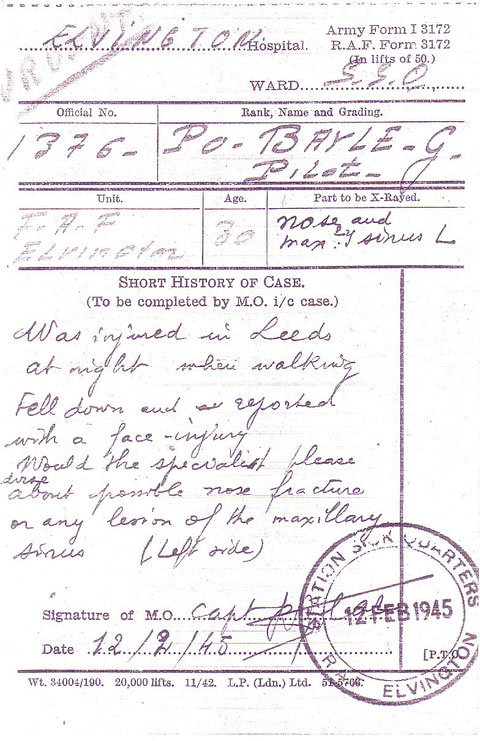 ELVINGTON Hospital.
Army Form I 3172
R.A.F. Form 3172
(In lifts of 50.)
URGENT
WARD S.S.Q.
Official No.
Rank, Name and Grading.
1376-
Po- BAYLE-G-
Pilot-
Unit.
Age.
Part to be X-Rayed.
F.A.F
Elvington
30
nose and
max. sinus L
SHORT HISTORY OF CASE.
(To be completed by M.O. i/c case.)
Was injured in Leeds
at night when walking
Fell down and reported
with a face-injury
Would the specialist please
about possible nose fracture
or any lesion of the maxillary
sinus (Left side)
Signature of M.O. Capt
Date 12/2/45
STATION SICK QUARTERS
12 FEB 1945
R.A.F. ELVINGTON
[P.T.O.
Wt. 34004/190. 20,000 lifts. 11/42. L.P. (Ldn.) Ltd. 51-5706.